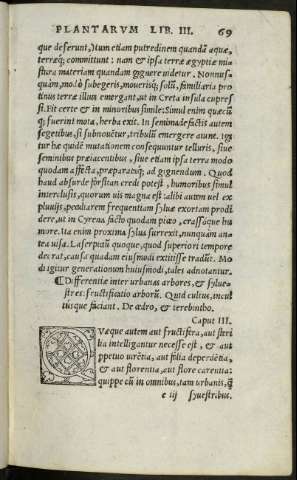 PLANTARVM LIB. III. 69
que deferunt, Num etiam putredinem quandã aquæ,
terræq; committunt: nam & ipsa terræ ægyptiæ mi=
stura materiam quandam gignere uidetur. Nonnus=
quàm, modò subegeris, moverisq; solũ, familiaria pro
tinus terræ illius emergant, ut in Creta insula cupres
si. Fit certe & in minoribus simile: Simul enim quæcũ
q; fuerint mota, herba exit. In seminade factis autem
segetibus, si subnouêtur, tribuli emergere aiunt. Igi
tur hæ quidẽ mutationem consequuntur telluris, siue
seminibus præiacentibus, siue etiam ipsa terra modo
quodam affecta, præparataq; ad gignendum. Quod
haud absurde forsitan credi potest, humoribus simul
interclusis, quorum uis magna est: alibi autem uel ex
pluuijs, peculiarem frequentiam syluæ exortam prodi
dere, ut in Cyrena, facto quodam piceo, crassoque hu
more. Ita enim proxima sylua surrexit, nunquàm an=
tea uisa. Laserpitiũ quoque, quod superiori tempore
deerat, causa quadam eiusmodi extitisse tradũt. Mo=
di igitur generationum huiusmodi, tales adnotantur.
¶ Differentiæ inter urbanas arbores, & sylue=
stres: fructificatio arborũ. Quid cultus, incul
tusque faciant. De cedro, & terebintho.
Caput III.
QVæque autem aut fructifera, aut steri
lia intelligantur necesse est, & aut
ppetuo uirẽtia, aut folia deperdẽtia,
& aut florentia, aut flore carentia:
quippe cũ in omnibus, tam urbanis, q̃
e iij syuestribus.